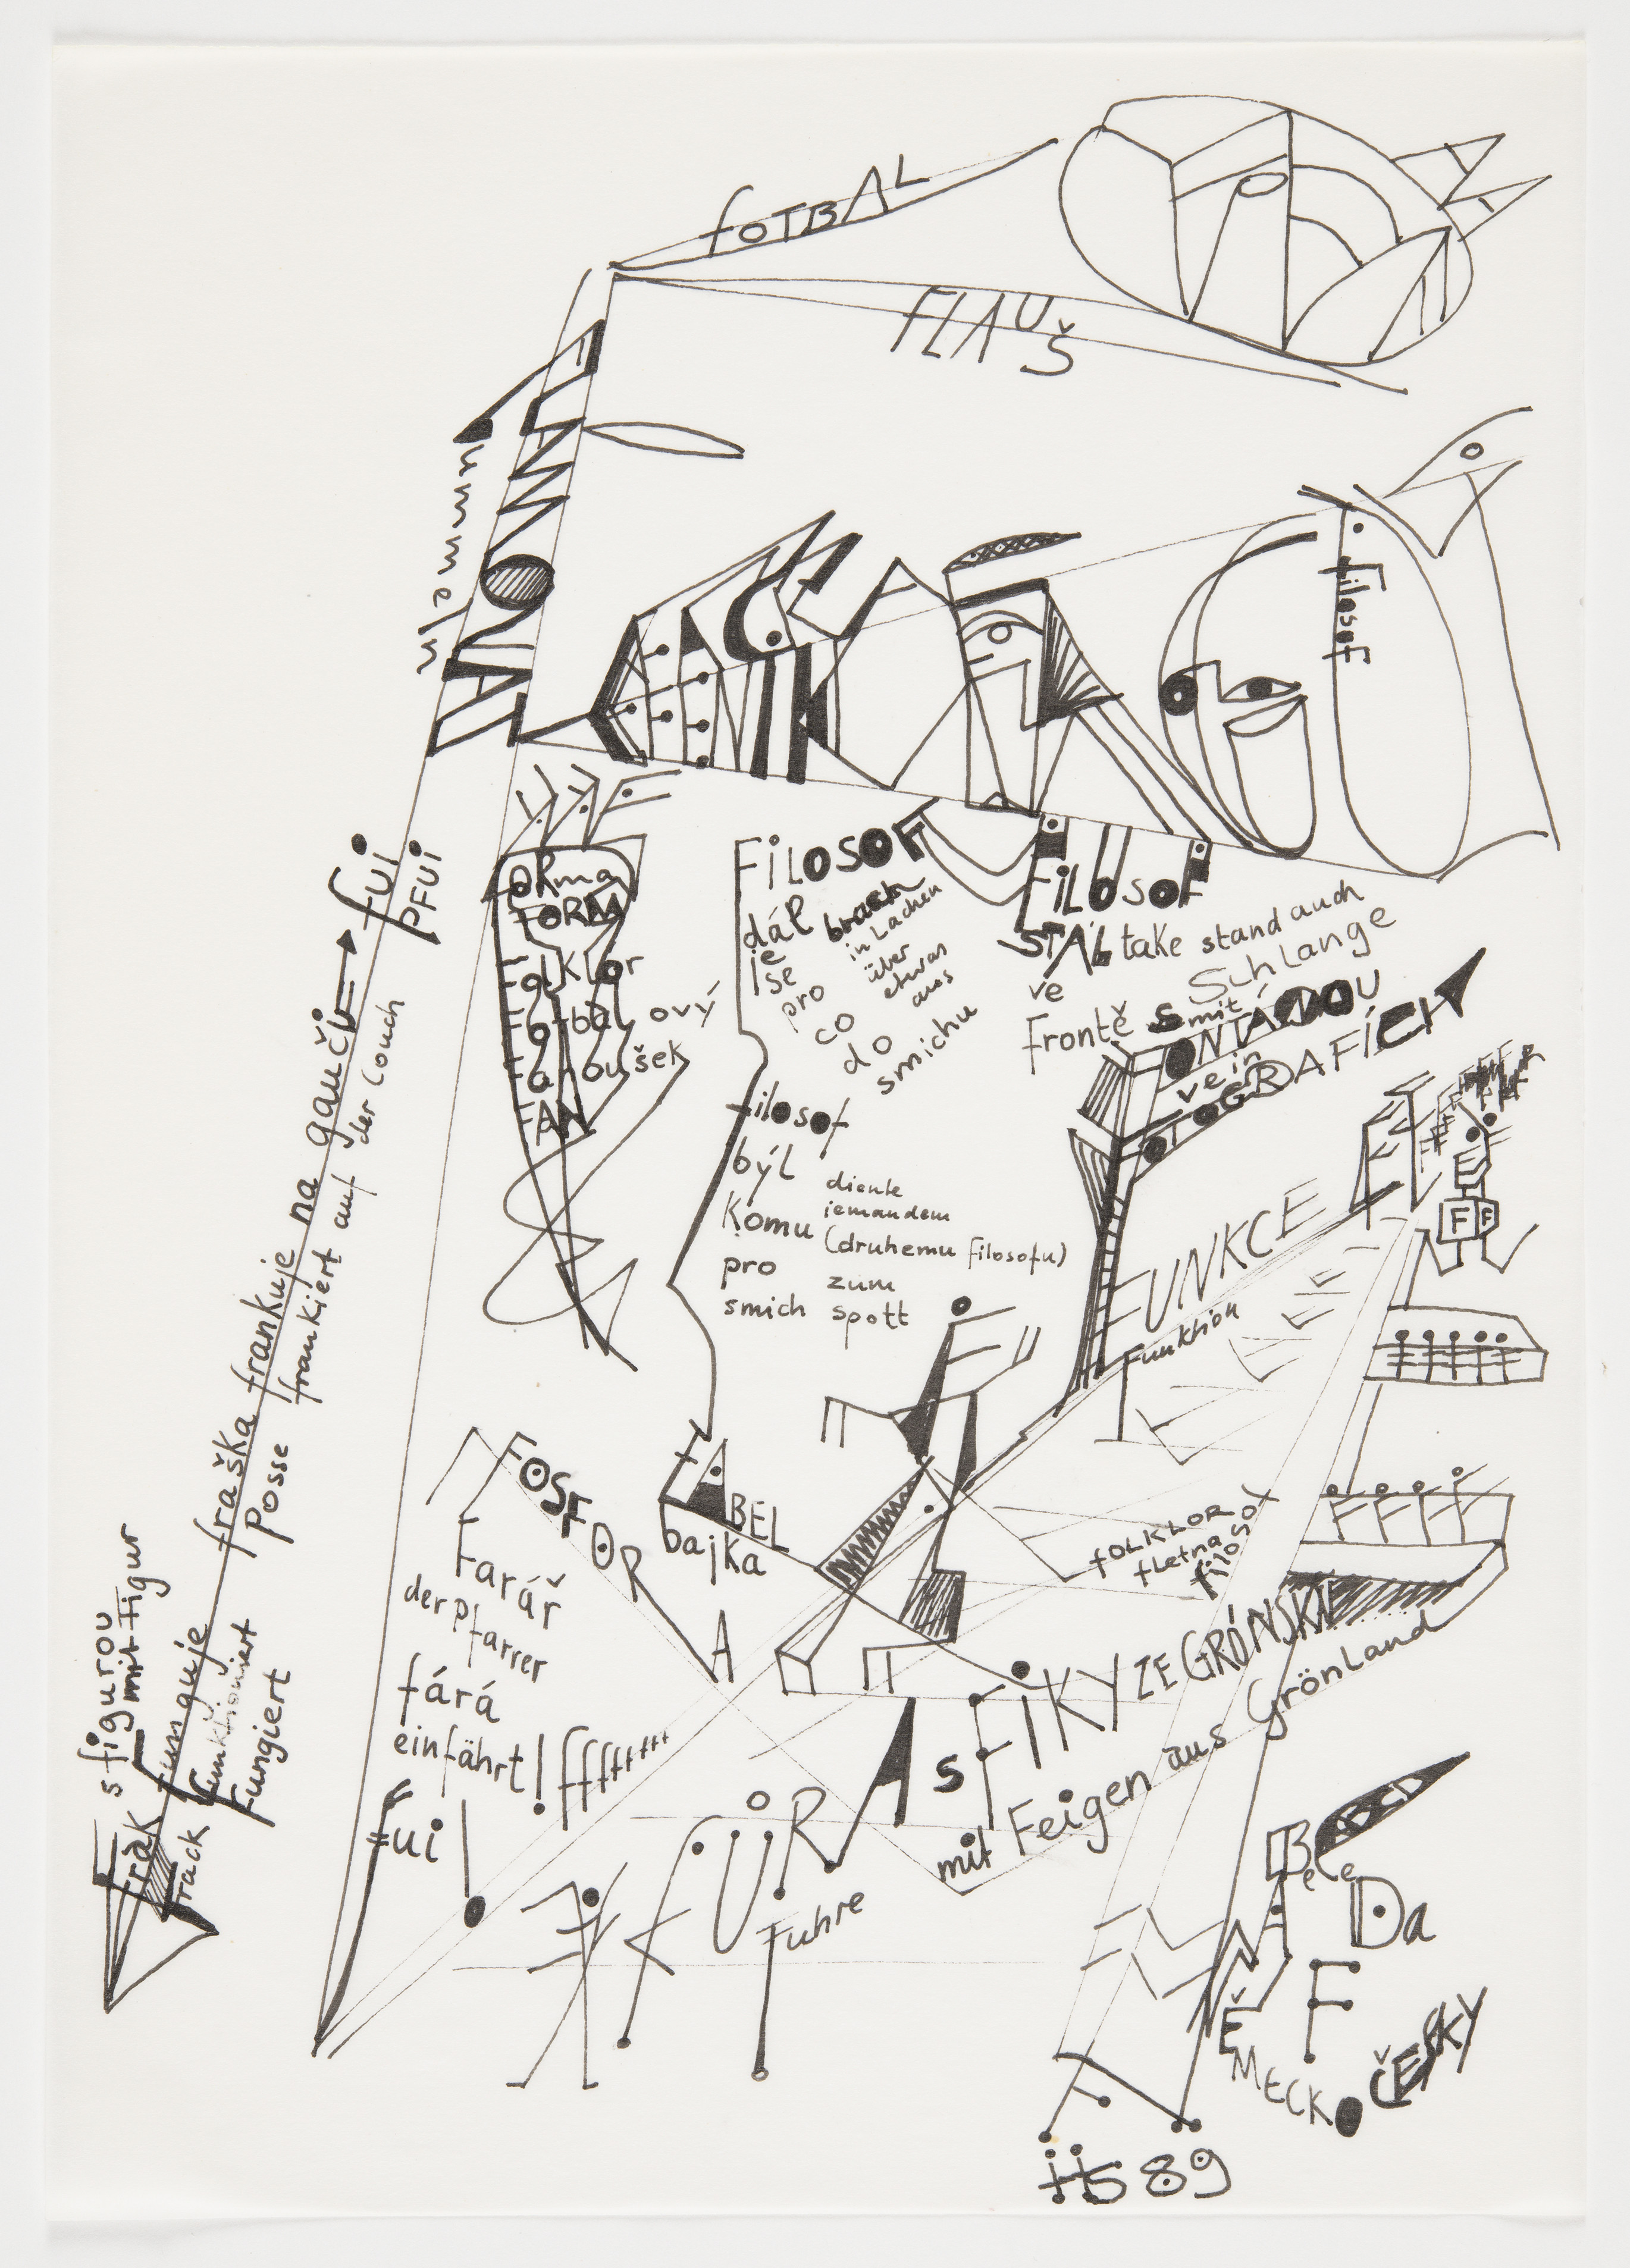 fOTBAL
FLAUŠ
fummeln
FLÁMOVAT
filosof
FORMA
FORM
Folklor
Fotbalový
Fanoušek
FAN
FiLOSOF
dál
se
pro
co
do
smíchu
brach
in Lachen
über
etwas
aus
FiLOSOF
STÁL take stand auch
ve Schlange
Frontě
s mit
FONTÁNOU
ve in
FOTOGRAFÍCH
fui
PFUI
filosof
býl diente
Komu jemandem
(druhemu filosofu)
pro zum
smich spott
FUNKCE
Funktion
F F
fraška frankuje na gauču
Posse frankiert auf der Couch
s figurou
mit Figur
frak funguje
Frack funktioniert
Fungiert
FOSFOR
A
Farář
der Pfarrer
fárá
einfährt!
fui!
fABEL
bajka
fOLKLOR
fletna
filosof
s FÍKY ZE GRÓNSKA
mit Feigen aus Grönland
FÚRA
Fuhre
ABCD
BeCe
Da
F
NĚMECKO ČESKY
HS 89